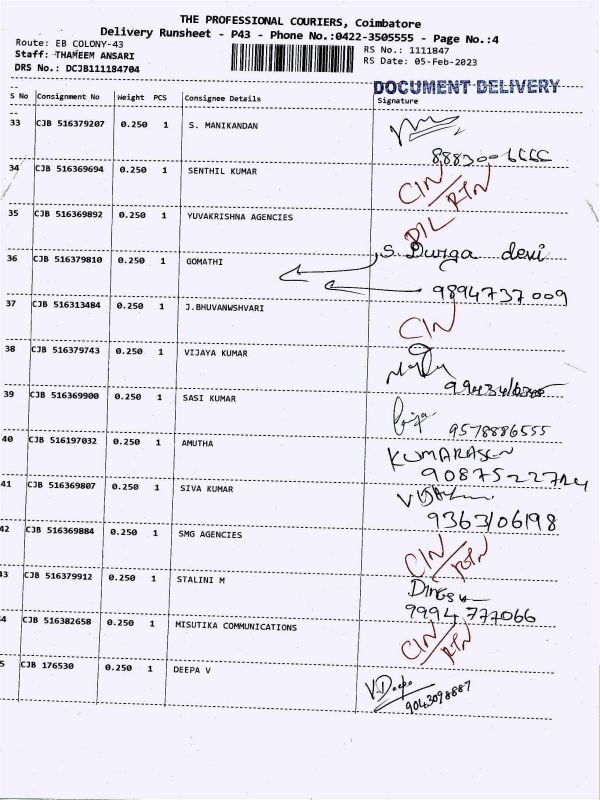 THE PROFESSIONAL COURIERS, Coimbatore
Delivery Runsheet - P43 - Phone No.:0422-3505555 - Page No.:4
Route: EB COLONY-43
RS No.: 1111847
Staff: THAMEEM ANSARI
RS Date: 05-Feb-2023
DRS No.: DCJB111184704
DOCUMENT DELIVERY
S No Consignment No Weight PCS Consignee Details Signature
33 CJB 516379207 0.250 1 S. MANIKANDAN
34 CJB 516369694 0.250 1 SENTHIL KUMAR CIN/RTN
35 CJB 516369892 0.250 1 YUVAKRISHNA AGENCIES D/L
36 CJB 516379810 0.250 1 GOMATHI S. Durga devi
9894737009
37 CJB 516313484 0.250 1 J.BHUVANWSHVARI CIN
38 CJB 516379743 0.250 1 VIJAYA KUMAR
39 CJB 516369900 0.250 1 SASI KUMAR
9578886555
40 CJB 516197032 0.250 1 AMUTHA KUMARASEN
41 CJB 516369807 0.250 1 SIVA KUMAR
9363106198
42 CJB 516369884 0.250 1 SMG AGENCIES CIN/RTN
43 CJB 516379912 0.250 1 STALINI M
9994777066
4 CJB 516382658 0.250 1 MISUTIKA COMMUNICATIONS CIN/RTN
5 CJB 176530 0.250 1 DEEPA V V.Deepa
9043098887